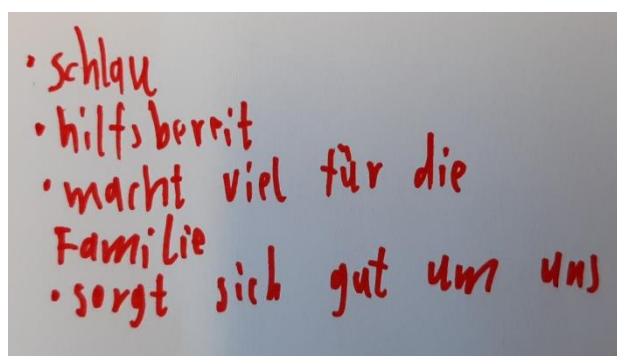 • schlau
• hilfsbereit
• macht viel für die
Familie
• sorgt sich gut um uns